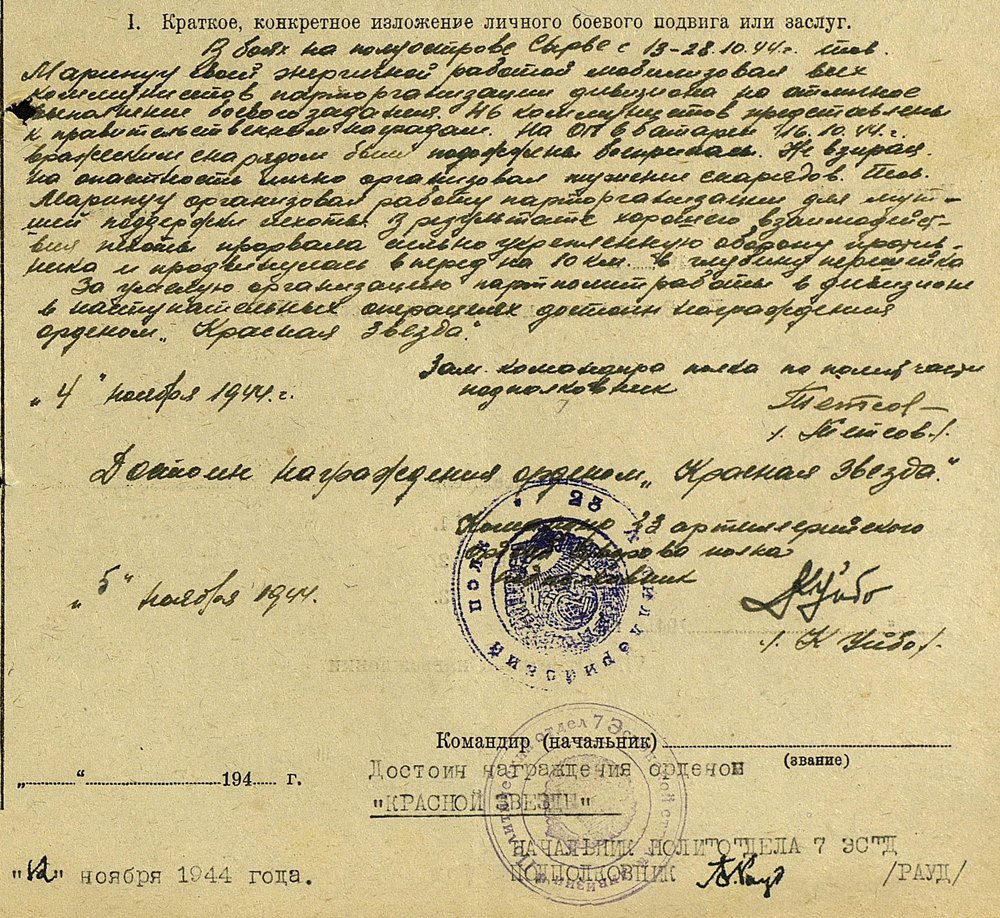 I. Краткое, конкретное изложение личного боевого подвига или заслуг.
В боях на полуострове Сырве с 13-28.10.44г. тов.
Маринуу своей энергичной работой мобилизовал всех
коммунистов парторганизации дивизиона на отличное
выполнение боевого задания. 46 коммунистов представлены
к правительственным наградам. На ОП 8 батареи 16.10.44.г.
вражеским снарядом были подожжены боеприпасы. Не взирая
на опастность лично организовал тужение снарядов. Тов.
Маринуу организовал работу парторганизации для луч-
шей поддержки пехоты. В результате хорошего взаимодейст-
вия пехота прорвала сильно укрепленную оборону против-
ника и продвинулась вперед на 10 км. в глубину перешейка
За умелую организацию партполитработы в дивизионе
в наступательных операциях достоин награждения
орденом „Красная Звезда".
Зам. командира полка по полит части
подполковник
„4" ноября 1944.г.
Тетсов
/. Тетсов./.
Достоин награждения орденом „Красная Звезда"
Командир 23 артиллерийского
ордена Суворова полка
подполковник
„5" ноября 1944.
КУйбо
/. К Уйбо/.
23 Артиллерийский полк
Командир (начальник)
(звание)
„ “ 194 г.
Достоин награждения орденом
"КРАСНОЙ ЗВЕЗДЫ"
НАЧАЛЬНИК ПОЛИТОТДЕЛА 7 ЭСТД
ПОДПОЛКОВНИК /РАУД/
"12" ноября 1944 года.